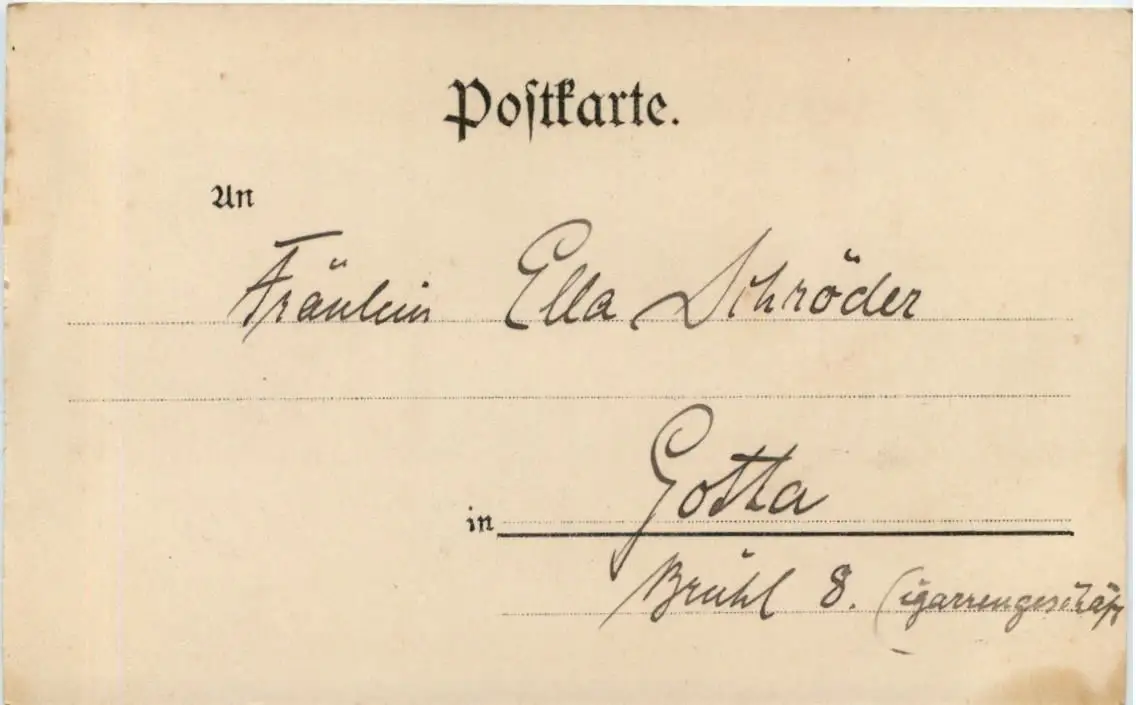 Postkarte.
An
Fräulein Ella Schröder
in Gotha
Brühl 8. Cigarrengeschäft